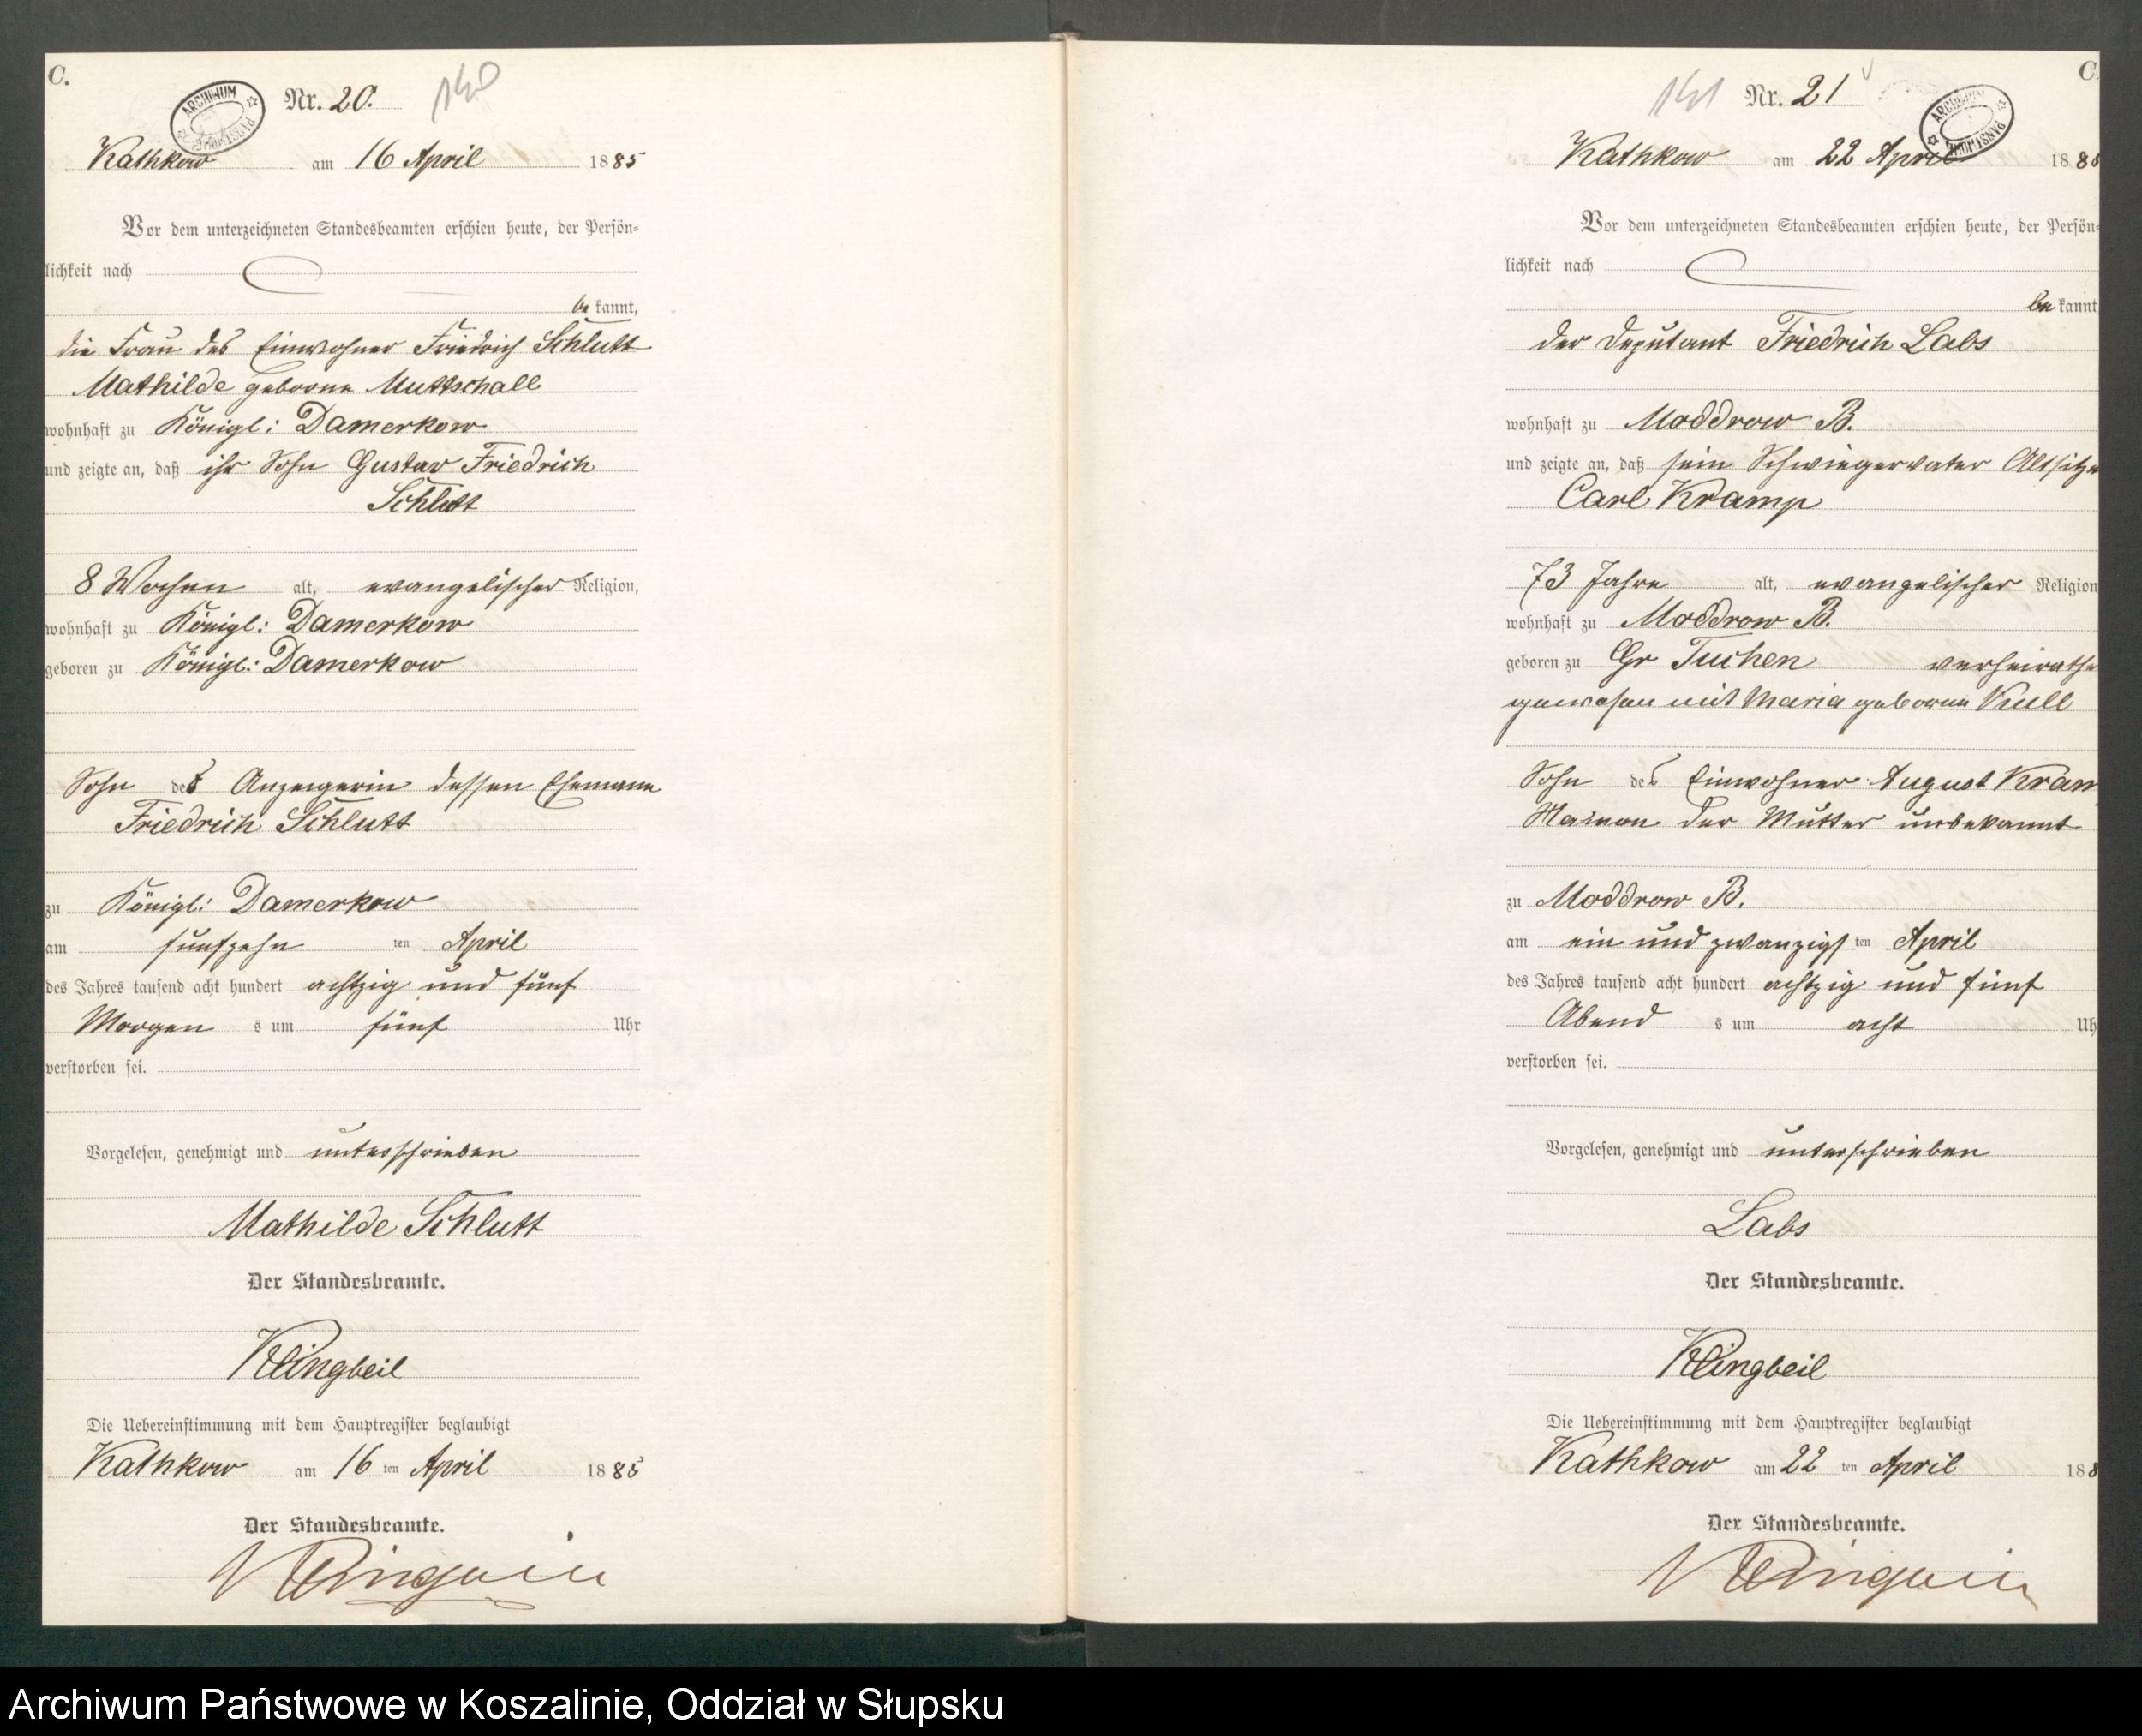 C.
ARCHIWUM PAŃSTWOWE
Nr. 20.
140
Kathkow am 16 April 1885
Vor dem unterzeichneten Standesbeamten erschien heute, der Persön-
lichkeit nach
be kannt,
die Frau des Einwohner Friedrich Schlutt
Mathilde geborne Muttschall
wohnhaft zu Königl: Damerkow
und zeigte an, daß ihr Sohn Gustav Friedrich
Schlutt
8 Wochen alt, evangelischer Religion,
wohnhaft zu Königl: Damerkow
geboren zu Königl: Damerkow
Sohn der Anzeigerin dessen Ehemann
Friedrich Schlutt
zu Königl: Damerkow
am funfzehn ten April
des Jahres tausend acht hundert achtzig und fünf
Morgen s um fünf Uhr
verstorben sei.
Vorgelesen, genehmigt und unterschrieben
Mathilde Schlutt
Der Standesbeamte.
Klingbeil
Die Uebereinstimmung mit dem Hauptregister beglaubigt
Kathkow am 16 ten April 1885
Der Standesbeamte.
Klingbeil
C
ARCHIWUM PAŃSTWOWE
141
Nr. 21
Kathkow am 22 April 188
Vor dem unterzeichneten Standesbeamten erschien heute, der Persön-
lichkeit nach
be kannt
der Deputant Friedrich Labs
wohnhaft zu Moddrow B.
und zeigte an, daß sein Schwiegervater Altsitze
Carl Kramp
73 Jahre alt, evangelischer Religion
wohnhaft zu Moddrow B.
geboren zu Gr Tuchen verheirathe
gewesen mit Maria geborne Kull
Sohn des Einwohner August Kram
Namen der Mutter unbekannt
zu Moddrow B.
am ein und zwanzigs ten April
des Jahres tausend acht hundert achtzig und fünf
Abend s um acht Uh
verstorben sei.
Vorgelesen, genehmigt und unterschrieben
Labs
Der Standesbeamte.
Klingbeil
Die Uebereinstimmung mit dem Hauptregister beglaubigt
Kathkow am 22 ten April 188
Der Standesbeamte.
Klingbeil
Archiwum Państwowe w Koszalinie, Oddział w Słupsku